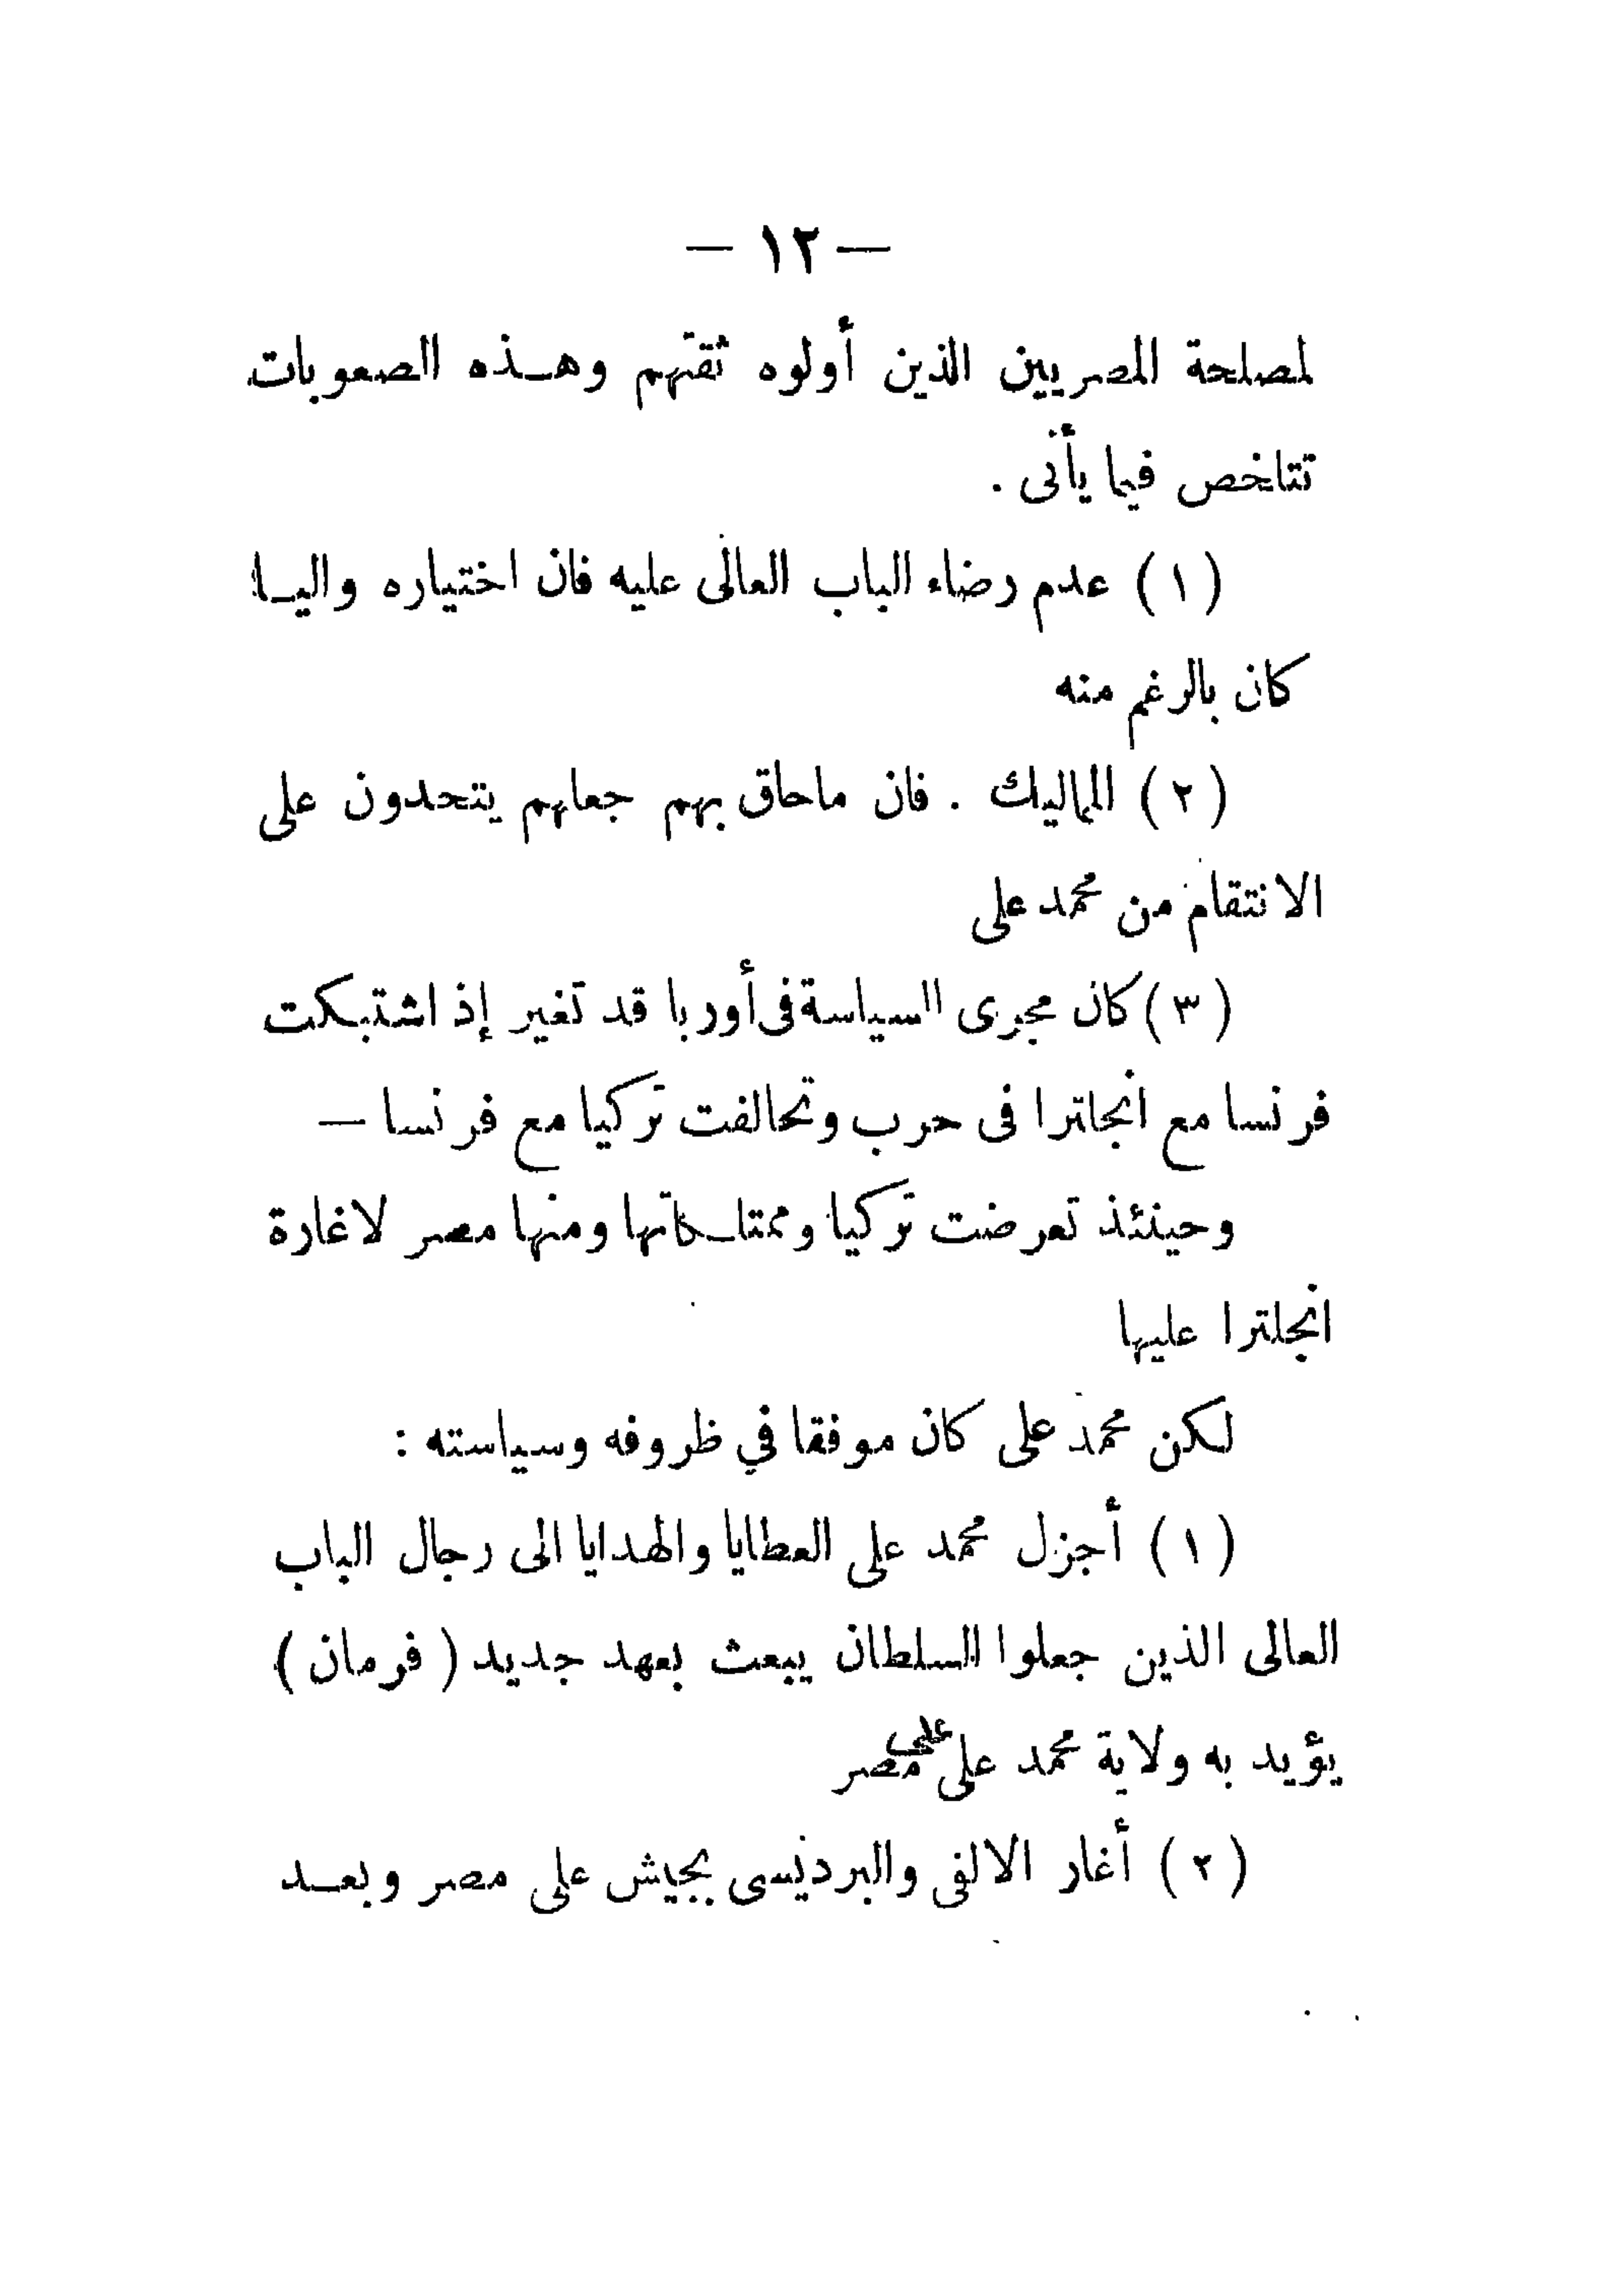 — ١٢ —
لمصلحة المصريين الذين أولوه ثقتهم وهـذه الصعوبات
تتلخص فيما يأتى .
( ١ ) عدم رضاء الباب العالى عليه فان اختياره واليـا
كان بالرغم منه
( ٢ ) المماليك . فان ماحاق بهم جعلهم يتحدون على
الانتقام من محمد على
( ٣ ) كان مجرى السياسة فى أوربا قد تغير إذ اشتبكت
فرنسا مع انجلترا فى حرب وتحالفت تركيا مع فرنسا —
وحينئذ تعرضت تركيا وممتلـكاتها ومنها مصر لاغارة
انجلترا عليها
لكن محمد على كان موفقا في ظروفه وسياسته :
( ١ ) أجزل محمد على العطايا والهدايا الى رجال الباب
العالى الذين جعلوا السلطان يبعث بعهد جديد ( فرمان )
يؤيد به ولاية محمد على على مصر
( ٢ ) أغار الالفى والبرديسى بجيش على مصر وبعـد